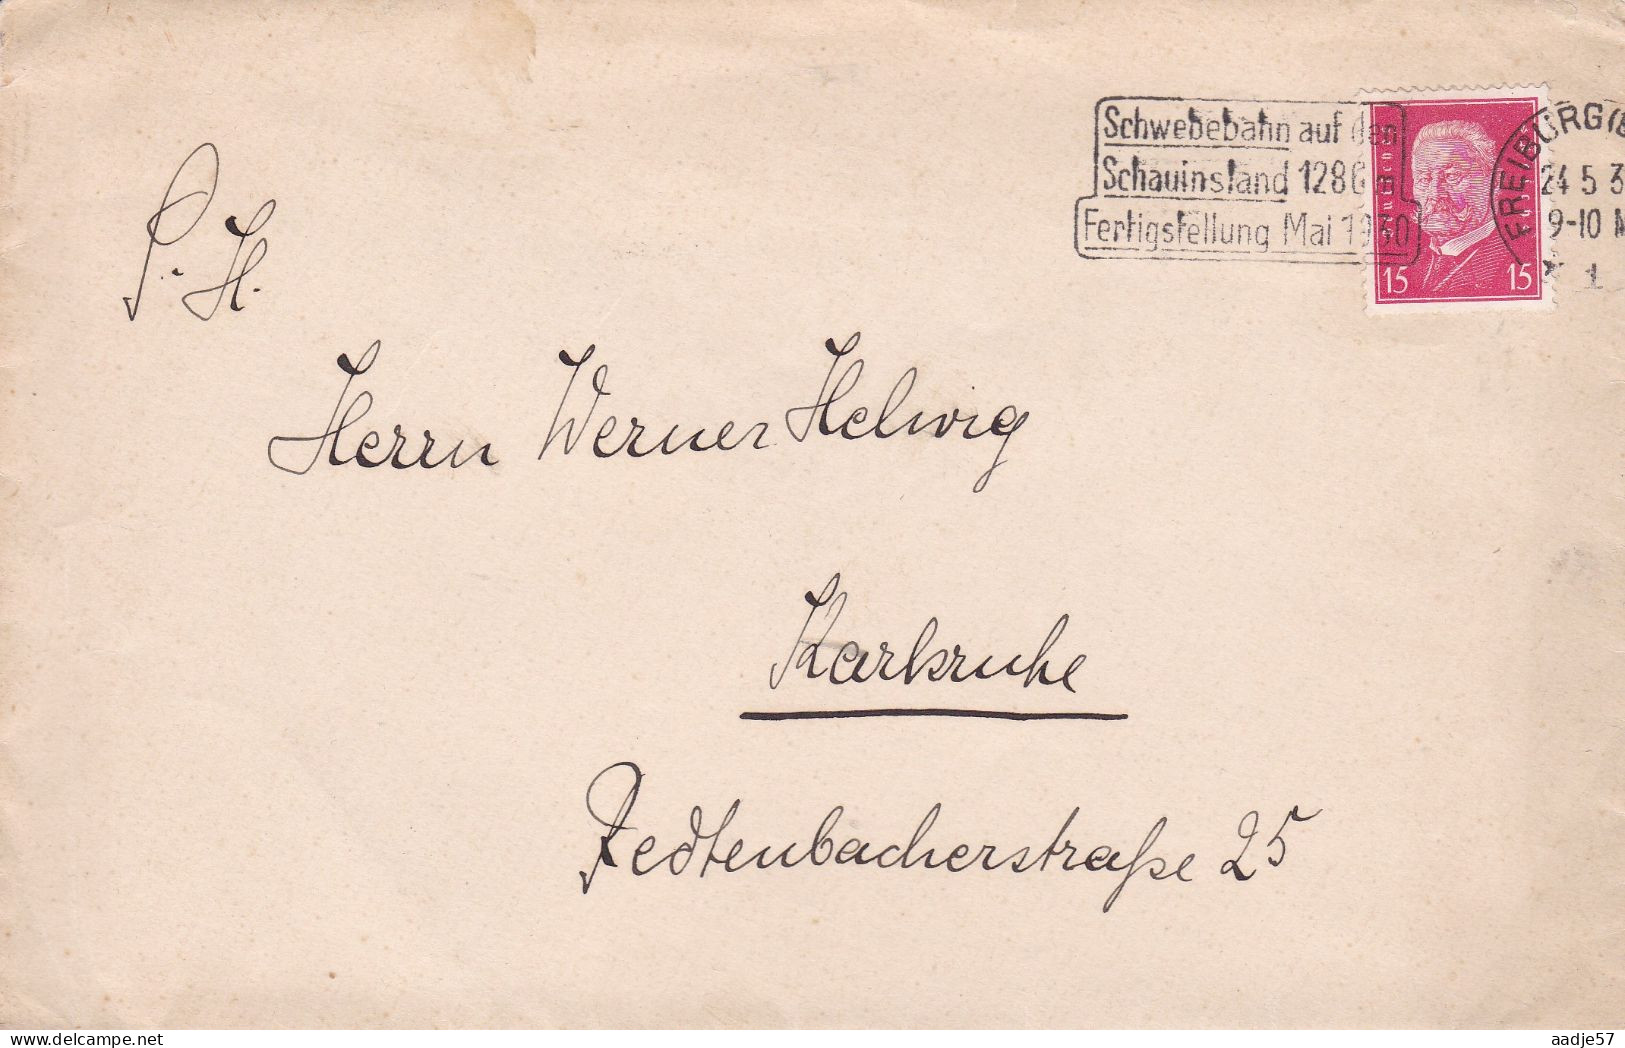 Schwebebahn auf den
Schauinsland 1286 m
Fertigstellung Mai 1930
FREIBURG (B
24 5 3
9-10
1
15 15
S. H.
Herrn Werner Helwig
Karlsruhe
Redtenbacherstraße 25
delcampe.net
aadje57